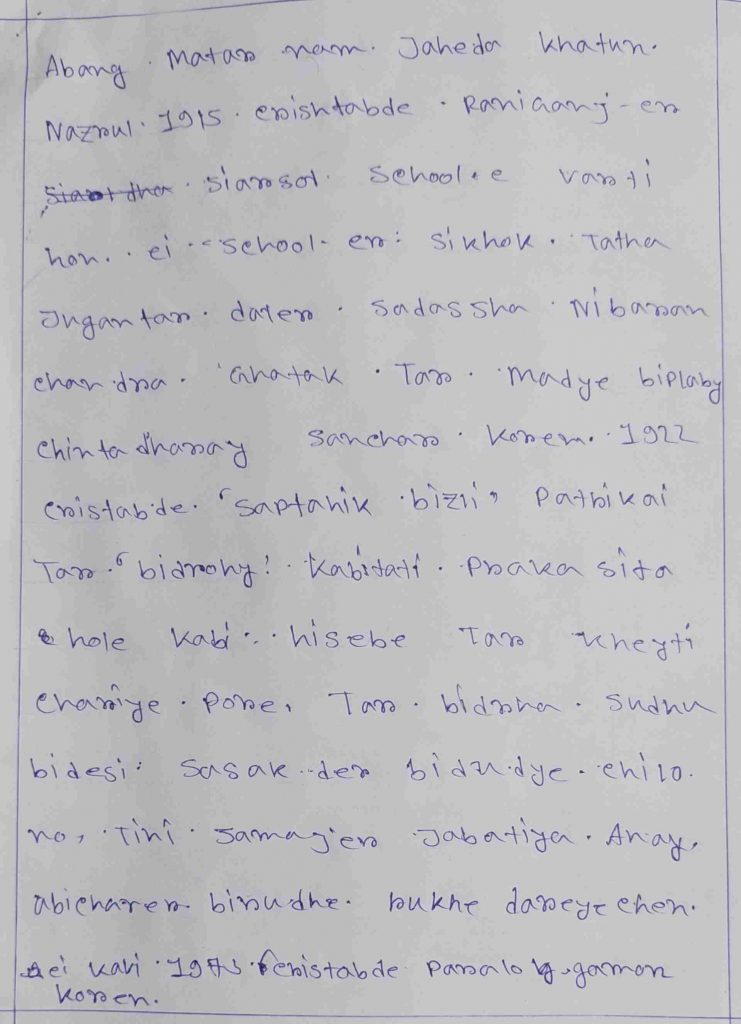 Abang. Matar nam. Jaheda khatun.
Nazrul. 1915. crishtabde. Raniganj-er
siarsol. School.e varti
hon.. ei.. school-er: sikhok. Tatha
Jugantar. daler. sadassha. Nibaran
chandra. Ghatak. Tar. madye biplaby
chinta dharay sanchar. koren.. 1922
cristabde. "saptahik.bizli" Patrikai
Tar. 'bidrohy'. kabitati. Prakasita
hole kabi... hisebe Tar kheyti
chariye. pore, Tar. bidrha. sudhu
bidesi: sasak..der birudye. chilo.
no, Tini. samajer Jabatiya. Anay,
abicharer. birudhe. rukhe dareyechen.
ei kavi. cristabde. paralok.gamon
koren.